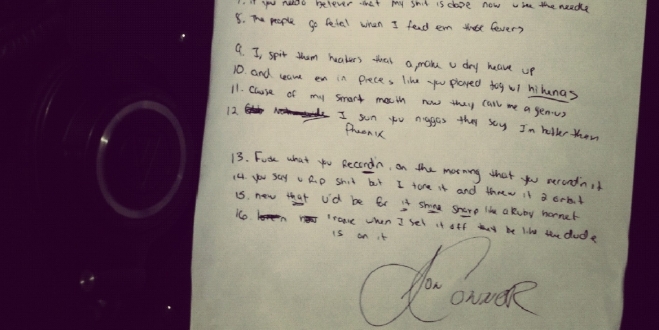 7. if you need a believer that my shit is dope now u see the needle
8. The people go fetal when I feed em these fevers
9. I, spit them heaters that a, make u dry heave up
10. and leave em in pieces like you played tag w/
11. Cause of my smart mouth now they call me a genius
12 I sun you niggas they say I'm hotter then
Phoenix
13. Fuck what you Recordin, on the morning that you recordin it
14. you say u Rip shit but I tore it and threw it 2 orbit
15. new that u'd be for it shine sharp like a Ruby hornet
16 'cause when I set it off that be like the dude
is on it
Jon Connor